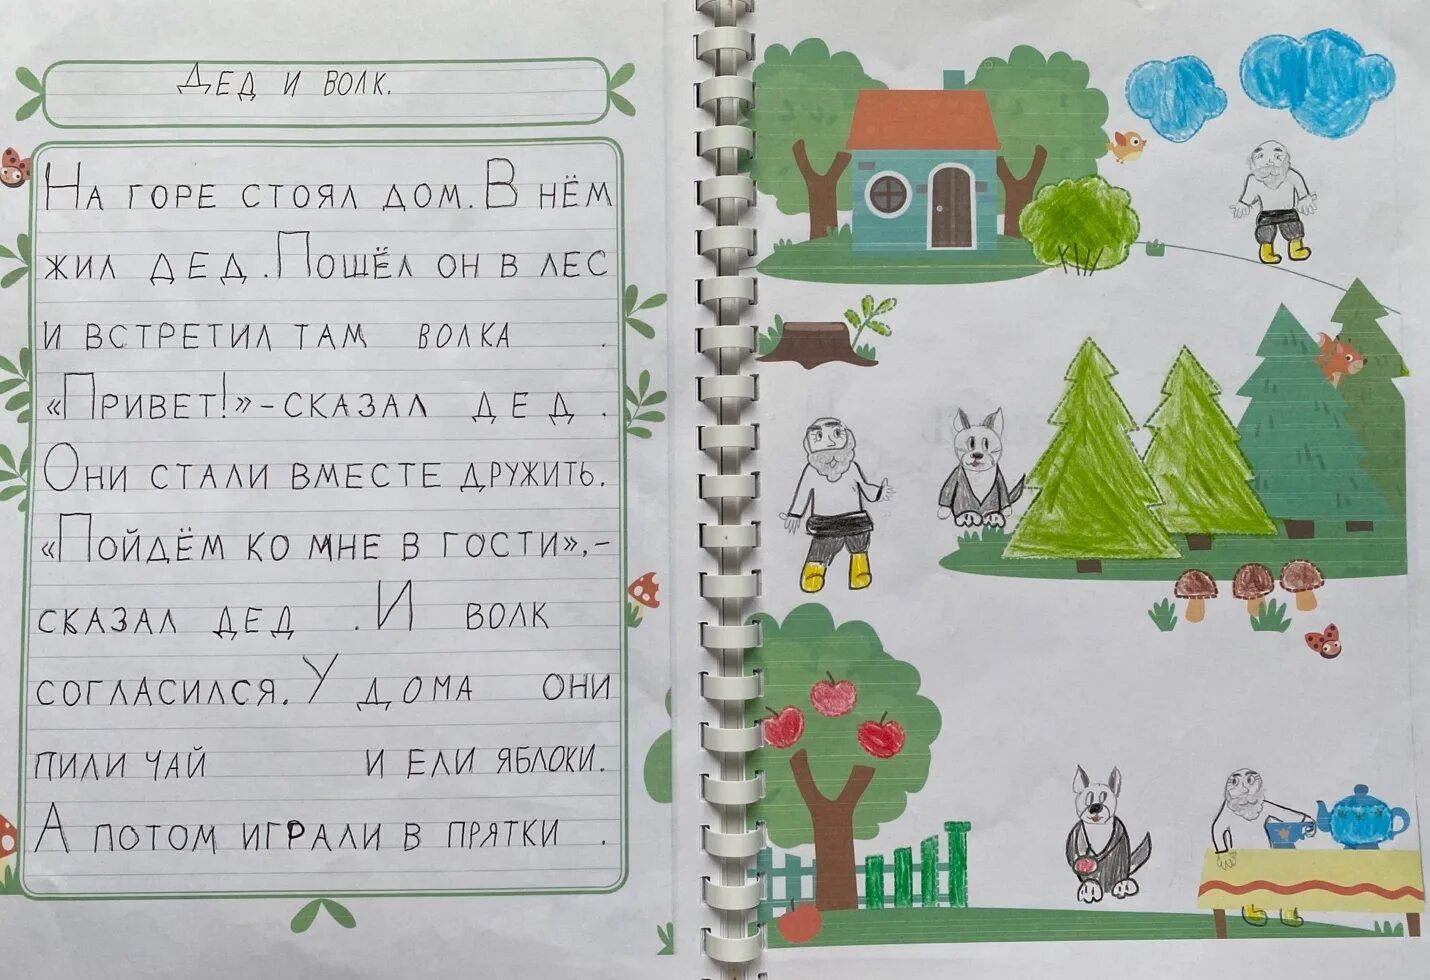 Дед и волк.
На горе стоял дом. В нём
жил дед. Пошёл он в лес
и встретил там волка .
«Привет!» - сказал дед .
Они стали вместе дружить.
«Пойдём ко мне в гости», -
сказал дед . И волк
согласился. У дома они
пили чай и ели яблоки.
А потом играли в прятки .